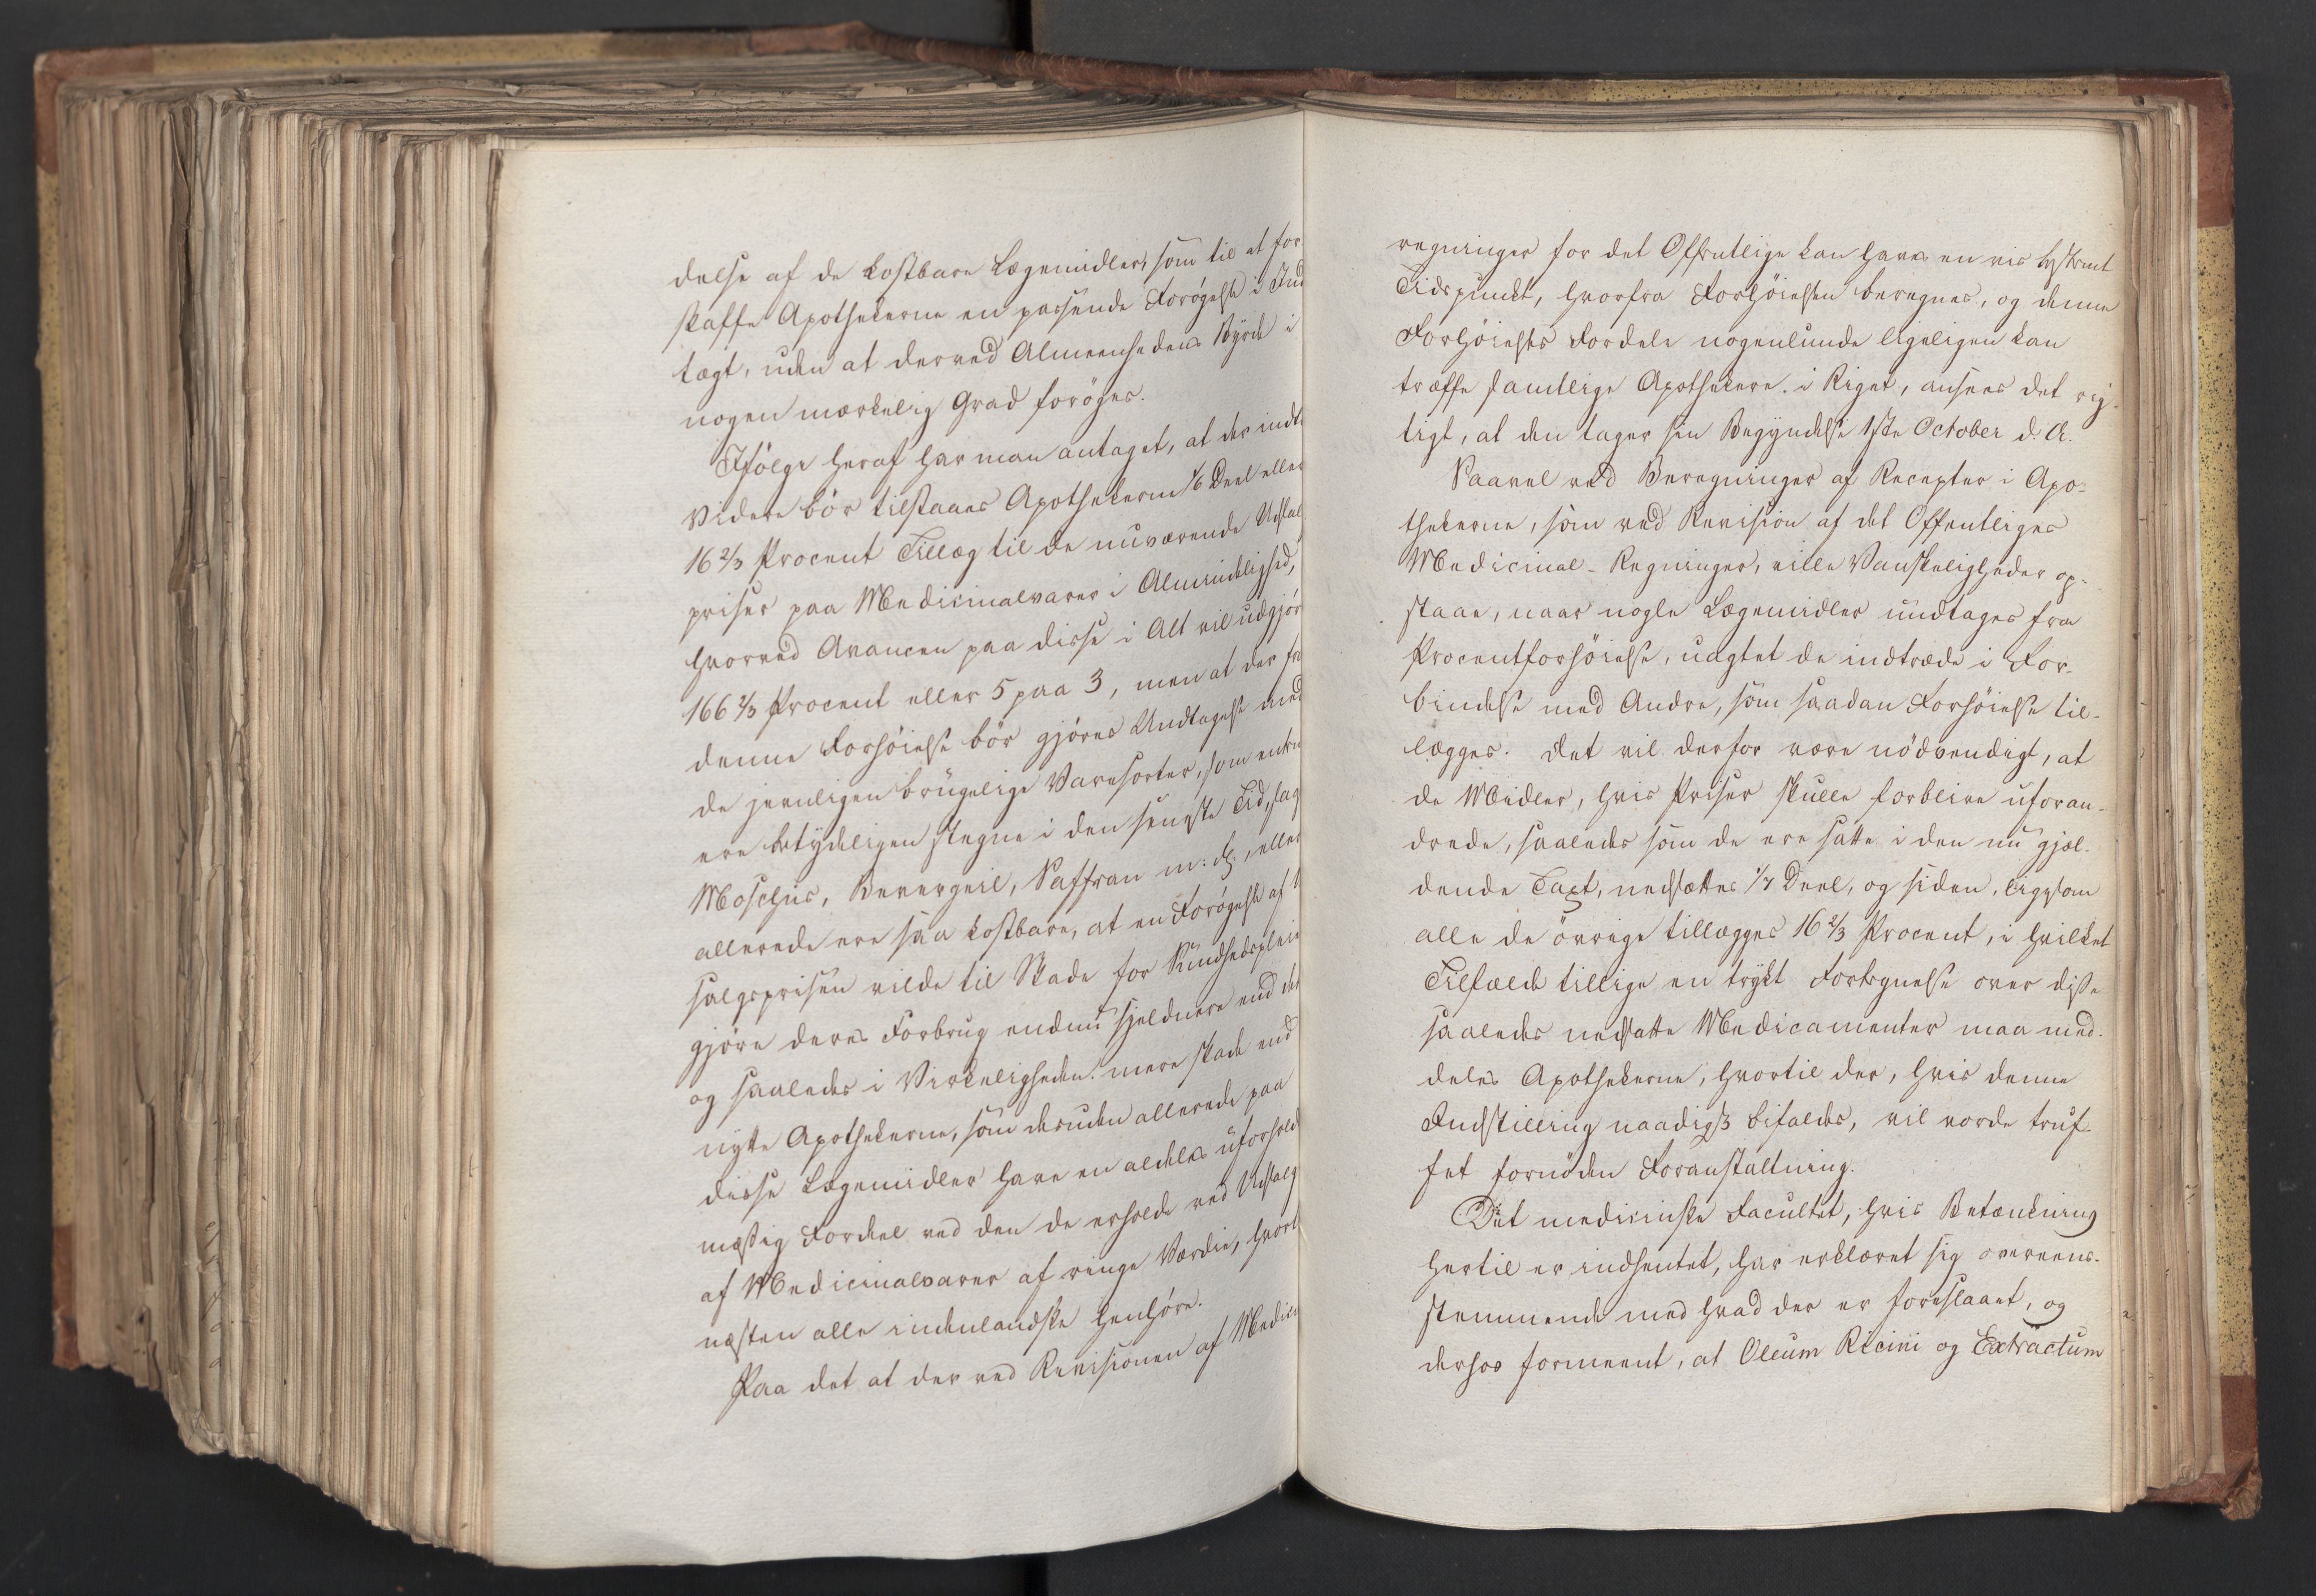 delse af de kostbare Lægemidler, som til at for-
skaffe Apothekerne en passende Forøgelse i Ind
tægt, uden at derved Almeenhedens Byrde i
nogen mærkelig Grad forøges.
Ifølge heraf har man antaget, at der indtil
Videre bør tilstaaes Apothekerne 1/6 Deel eller
16 2/3 Procent Tillæg til de nuværende Udsalg
priser paa Medicinalvarer i Almindelighed,
hvorved Avancen paa disse i Alt vil udgjøre
166 2/3 Procent eller 5 paa 3, men at der fra
denne Forhøielse bør gjøres Undtagelse med
de jevnligen brugelige Varesorter, som enten
ere betydeligen stegne i den seneste Tid,
Moschus, Bevergeil, Saffran m: fl., eller
allerede ere saa kostbare, at en Forøgelse af
salgsprisen vilde til Skade for Sundhedspleie
gjøre deres Forbrug endnu sjeldnere end det
og saaledes i Virkeligheden mere skade end
nytte Apothekerne, som desuden allerede paa
disse Lægemidler have en aldeles uforhold
mæssig Fordeel ved den de erholde ved Udsalg
af Medicinalvarer af ringe Værdie, hvort
næsten alle indenlandske henhøre.
Paa det at der ved Revisionen af Medicin
regninger for det Offentlige kan haves en vis bestemt
Tidspunkt, hvorfra Forhøielsen beregnes, og denne
Forhøielses Fordele nogenlunde ligeligen kan
træffe samtlige Apothekere i Riget, ansees det rig-
tigt, at den tager sin Begyndelse 1ste October d. A.
Saavel ved Beregninger af Recepter i Apo-
thekerne, som ved Revision af det Offentliges
Medicinal-Regninger, ville Vanskeligheder op-
staae, naar nogle Lægemidler undtages fra
Procentforhøielse, uagtet de indtræde i For-
bindelse med Andre, som saadan Forhøielse til-
lægges. Det vil derfor være nödvendigt, at
de Midler, hvis Priser skulle forblive uforan-
drede, saaledes som de ere satte i den nu gjæl-
dende Taxt, nedsættes 1/7 Deel, og siden, ligesom
alle de övrige tillægges 16 2/3 Procent, i hvilket
Tilfælde tillige en trykt Fortegnelse over disse
saaledes nedsatte Medicamenter maa med-
deles Apothekerne, hvortil der, hvis denne
Indstilling naadigst bifaldes, vil vorde truf-
fet fornöden Foranstaltning.
Det medicinske Facultet, hvis Betænkning
hertil er indhentet, har erklæret sig overeens-
stemmende med hvad der er foreslaaet, og
derhos formeent, at Oleum Ricini og Extractum